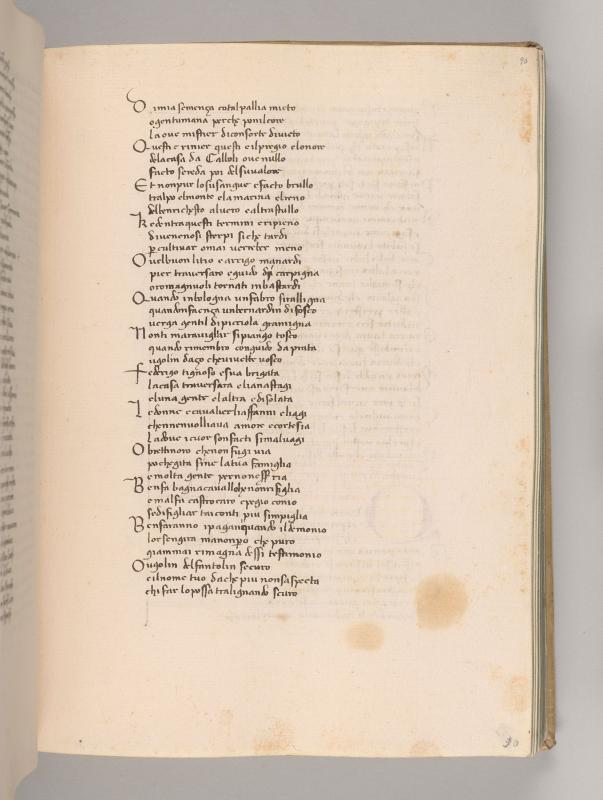 90
Di mia semença cotal pallia mieto
o gentumana perche ponilcore
la oue mistier diconsorte diuieto
Questi e rinier questi e ilpregio elonore
dela casa da Calboli oue nullo
facto sereda poi delsuualore
Et nonpur losusangue e facto brullo
tralpo elmonte ela marina elreno
delbenrichesto aluero ealtrastullo
Ke dentra questi termini eripieno
diuenenosi sterpi siche tardi
p cultiuar omai uerieber meno
Ouelbuon litio e arrigo manardi
pier trauersaro eguido di carpigna
oromagnuoli tornati inbastardi
Quando inbologna unfabro siralligna
quandonfaença unbernardin difosco
uerga gentil dipicciola gramigna
Nonti marauigliar sipiango tosco
quando rimembro conguido da prata
ugolin daço cheuiuette uosco
Federigo tignoso esua brigata
la casa trauersara elianastagi
eluna gente elaltra e disolata
Le donne ecaualier liaffanni eliagi
chennenuolliaua amore ecortesia
Ladoue icuor sonfacti simaluagi
O brettinoro chenon fugi uia
poche gita sine latua famiglia
e molta gente per non esser ria
Ben fa bagnacauallo che nonrifiglia
e mal fa castrocaro e pegio conio
se difigliar tai conti piu simpiglia
Ben faranno i pagan quando il demonio
lor sengira ma non po che puro
giammai rimagna dessi testimonio
O ugolin delfantolin securo
eilnome tuo da che piu nonsaspecta
chi far lo possa tralignando scuro